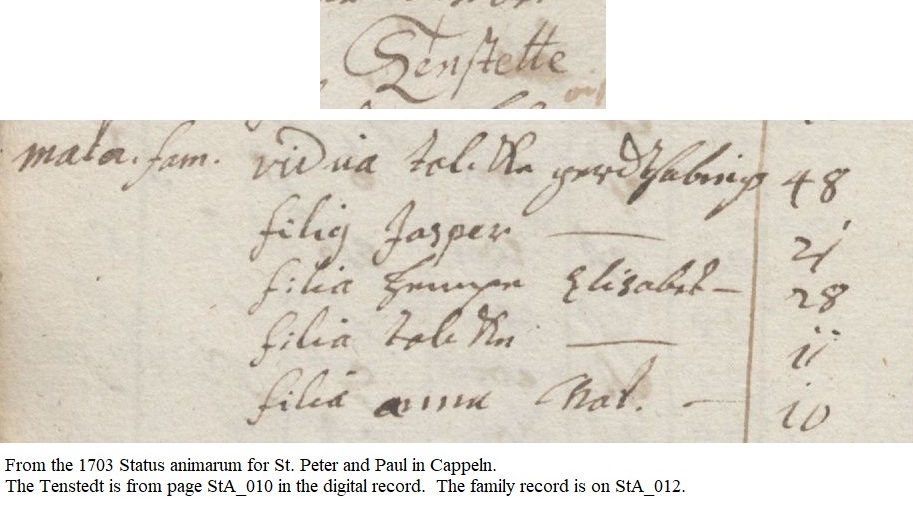 Tenstette
mata. fam. vidua talcke gerdt 48
filig Jasper — 21
filia Elisabet — 28
filia talcke — 11
filia anna — 10
From the 1703 Status animarum for St. Peter and Paul in Cappeln.
The Tenstedt is from page StA_010 in the digital record. The family record is on StA_012.